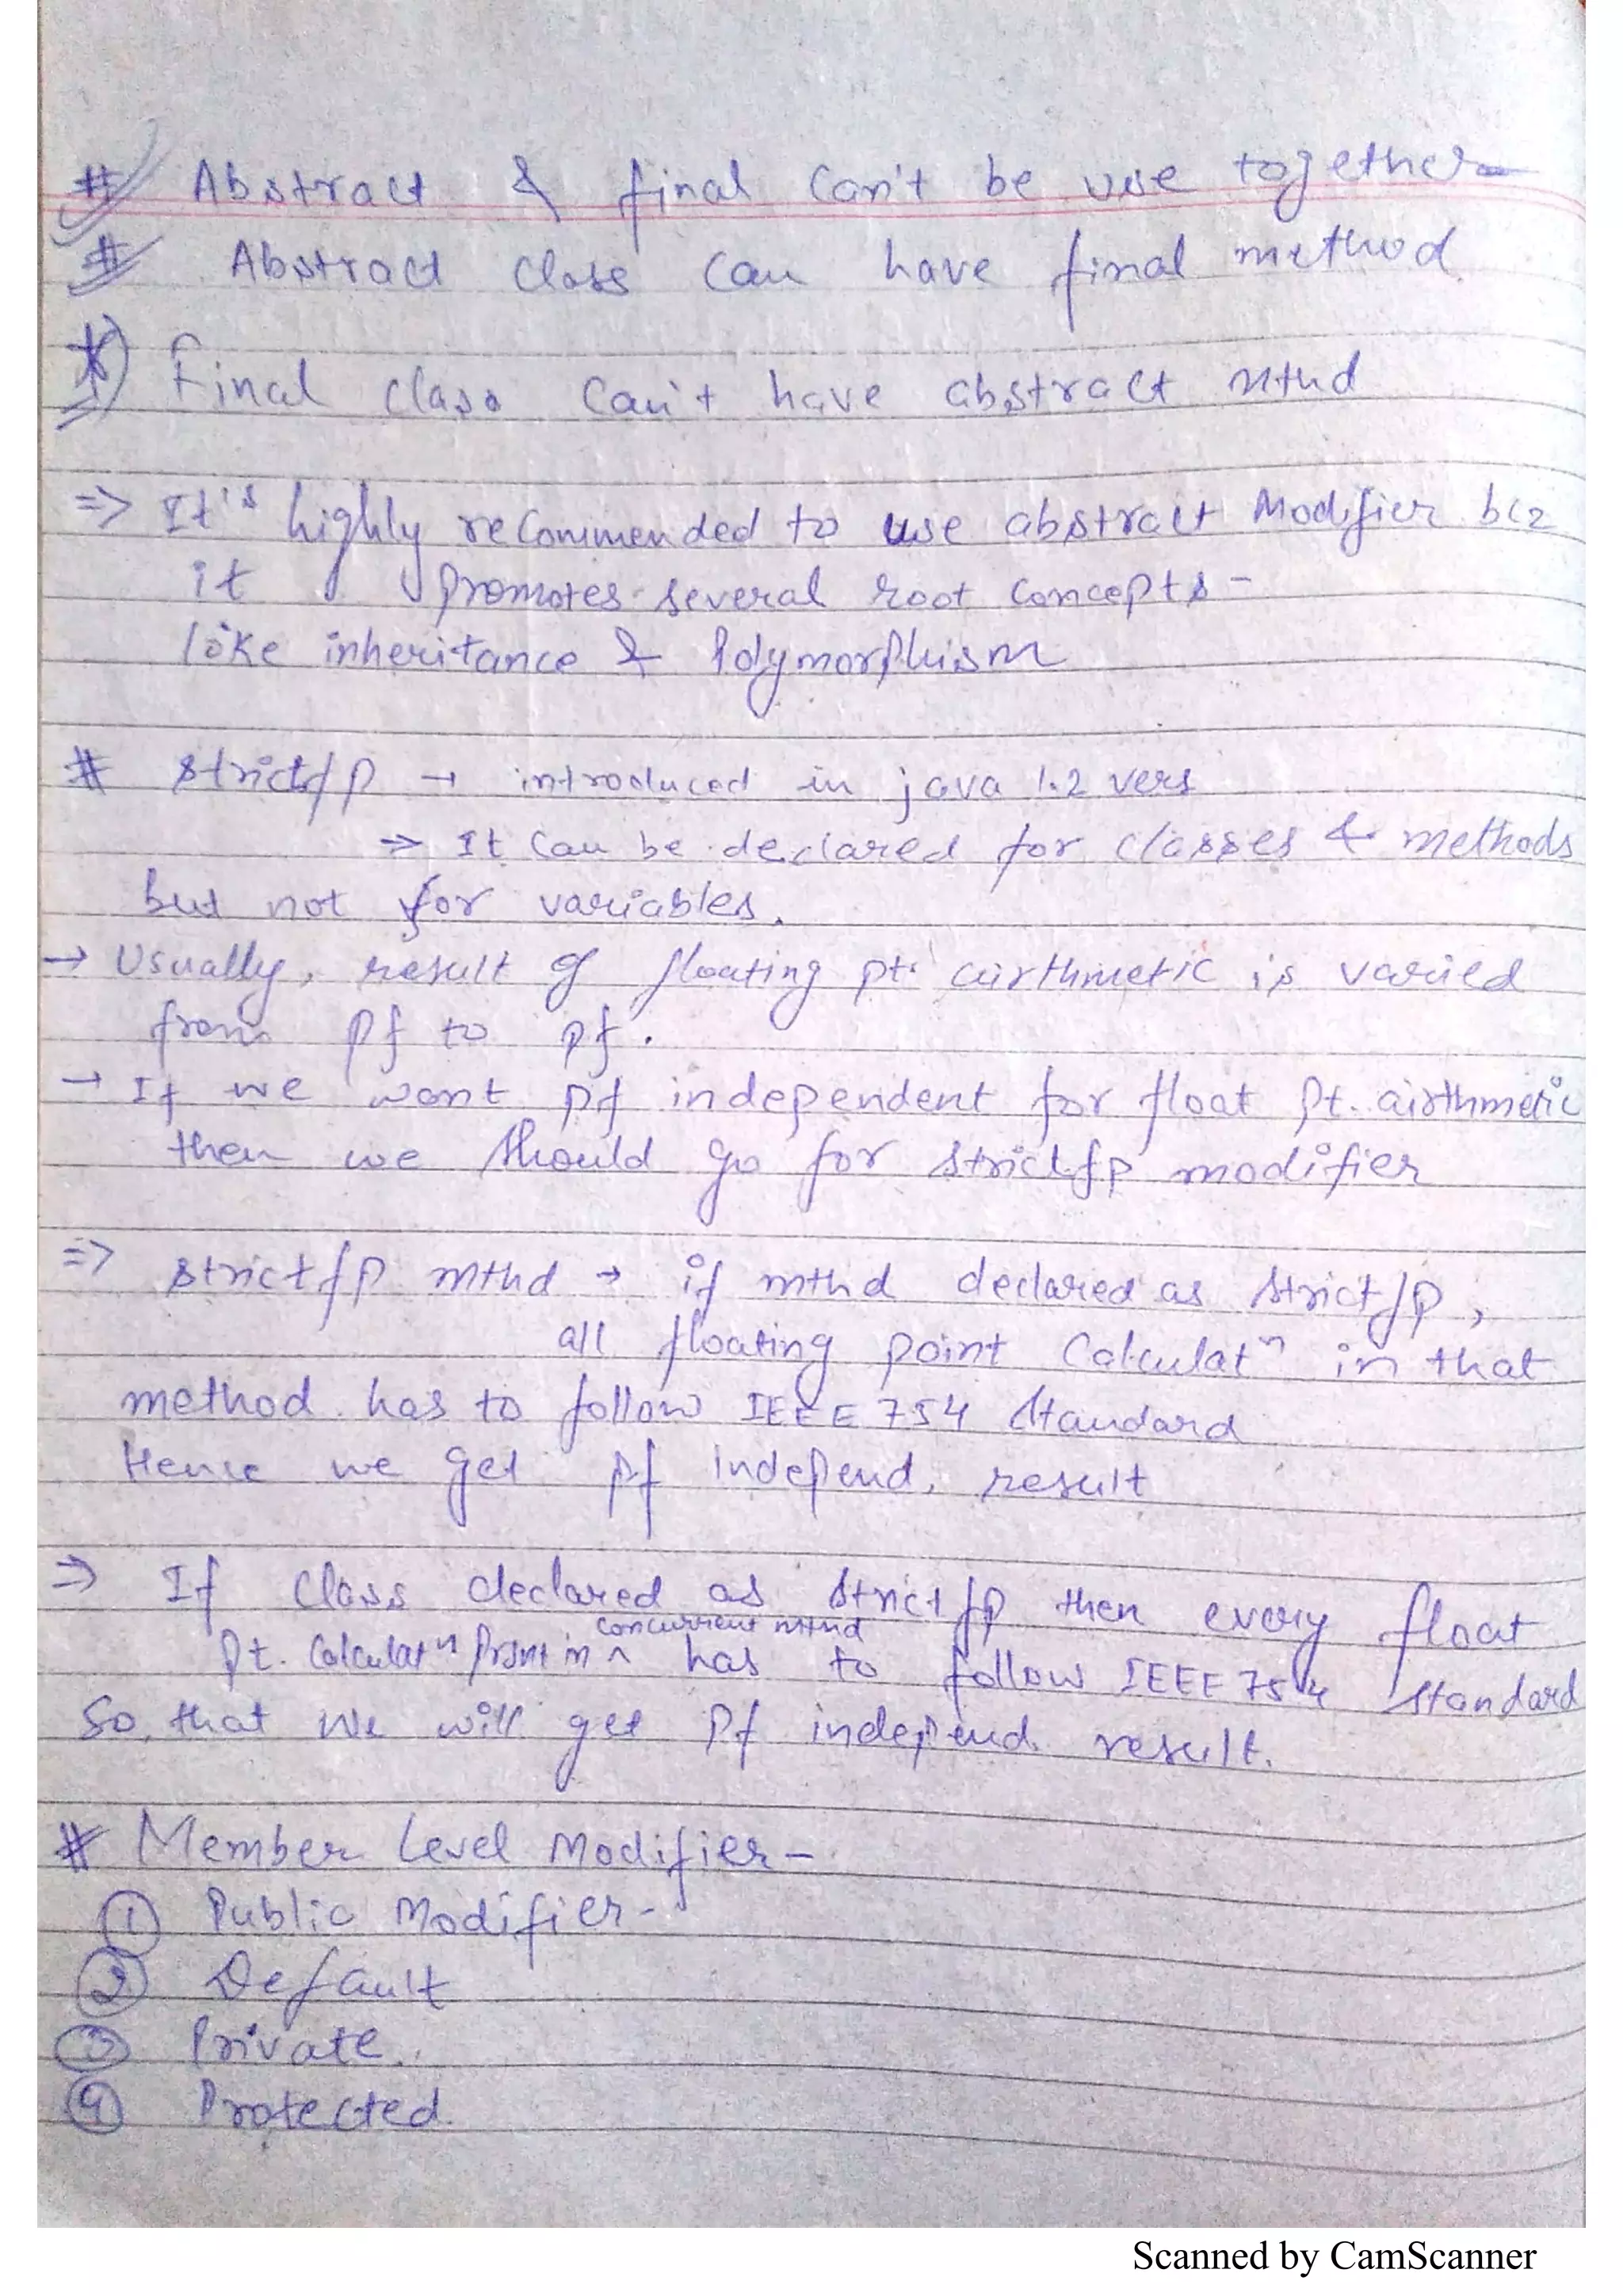 # Abstract & final can't be use together
# Abstract class can have final method
*) Final class can't have abstract mthd
=> It's highly recommended to use abstract Modifier bcz
it promotes several root concepts -
like inheritance & Polymorphism
# strictfp → introduced in java 1.2 vers
=> It can be declared for classes & methods
but not for variables.
→ Usually, result of floating pt. airthmetic is varied
from pf to pf.
→ If we want pf independent for float pt. airthmetic
then we should go for strictfp modifier
=> strictfp mthd → if mthd declared as strictfp,
all floating point Calculatⁿ in that
method has to follow IEEE 754 standard
Hence we get pf independ. result
=> If class declared as strictfp then every float
concurrent mthd
pt. Calculatⁿ in ^ has to follow IEEE 754 standard
So, that we will get pf independ. result.
# Member Level Modifier -
① Public Modifier -
② Default
③ Private.
④ Protected.
Scanned by CamScanner